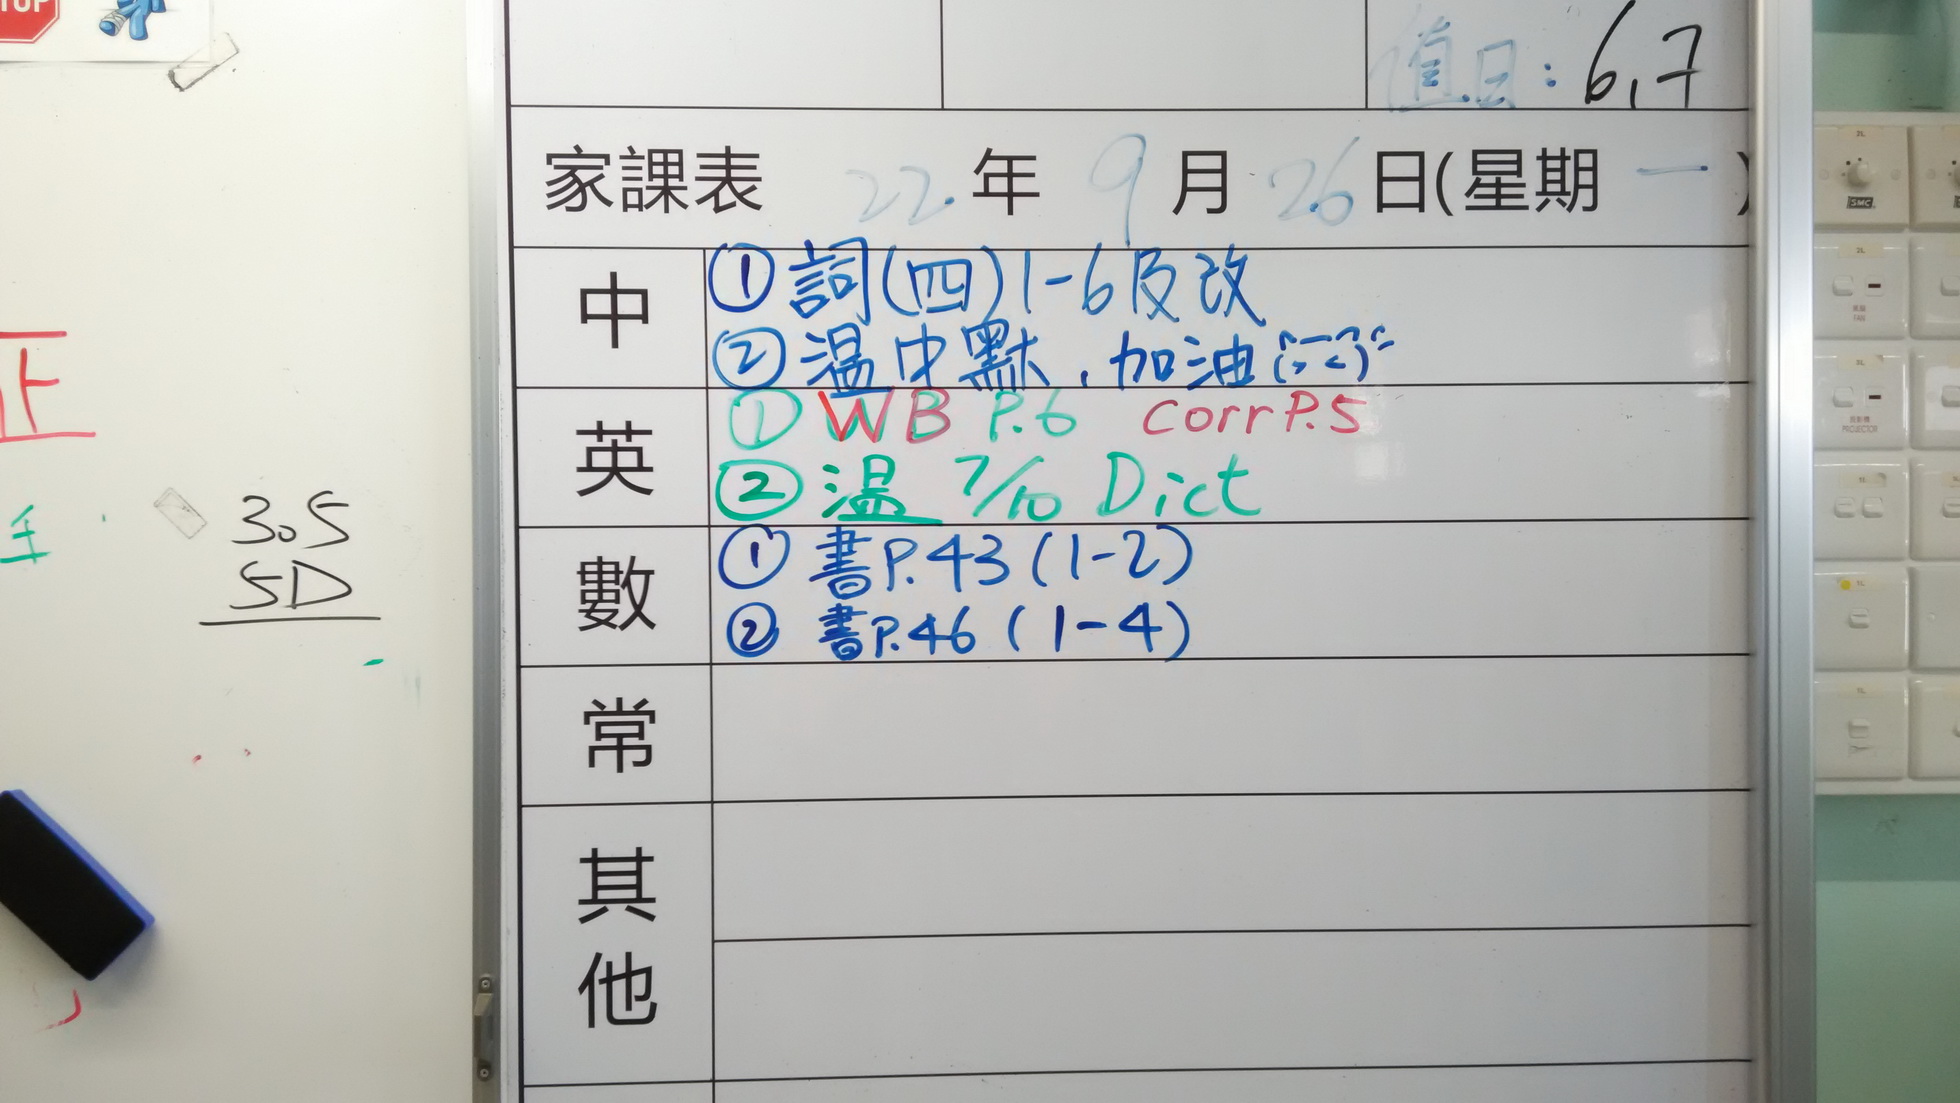 TOP
值日：6,7
家課表 22年9月26日(星期一)
中
①詞(四)1-6及改
②温中默，加油
英
① WB P.6 Corr P.5
② 温 7/10 Dict
數
① 書P.43(1-2)
② 書P.46(1-4)
常
其他
正
305
5D
SMC